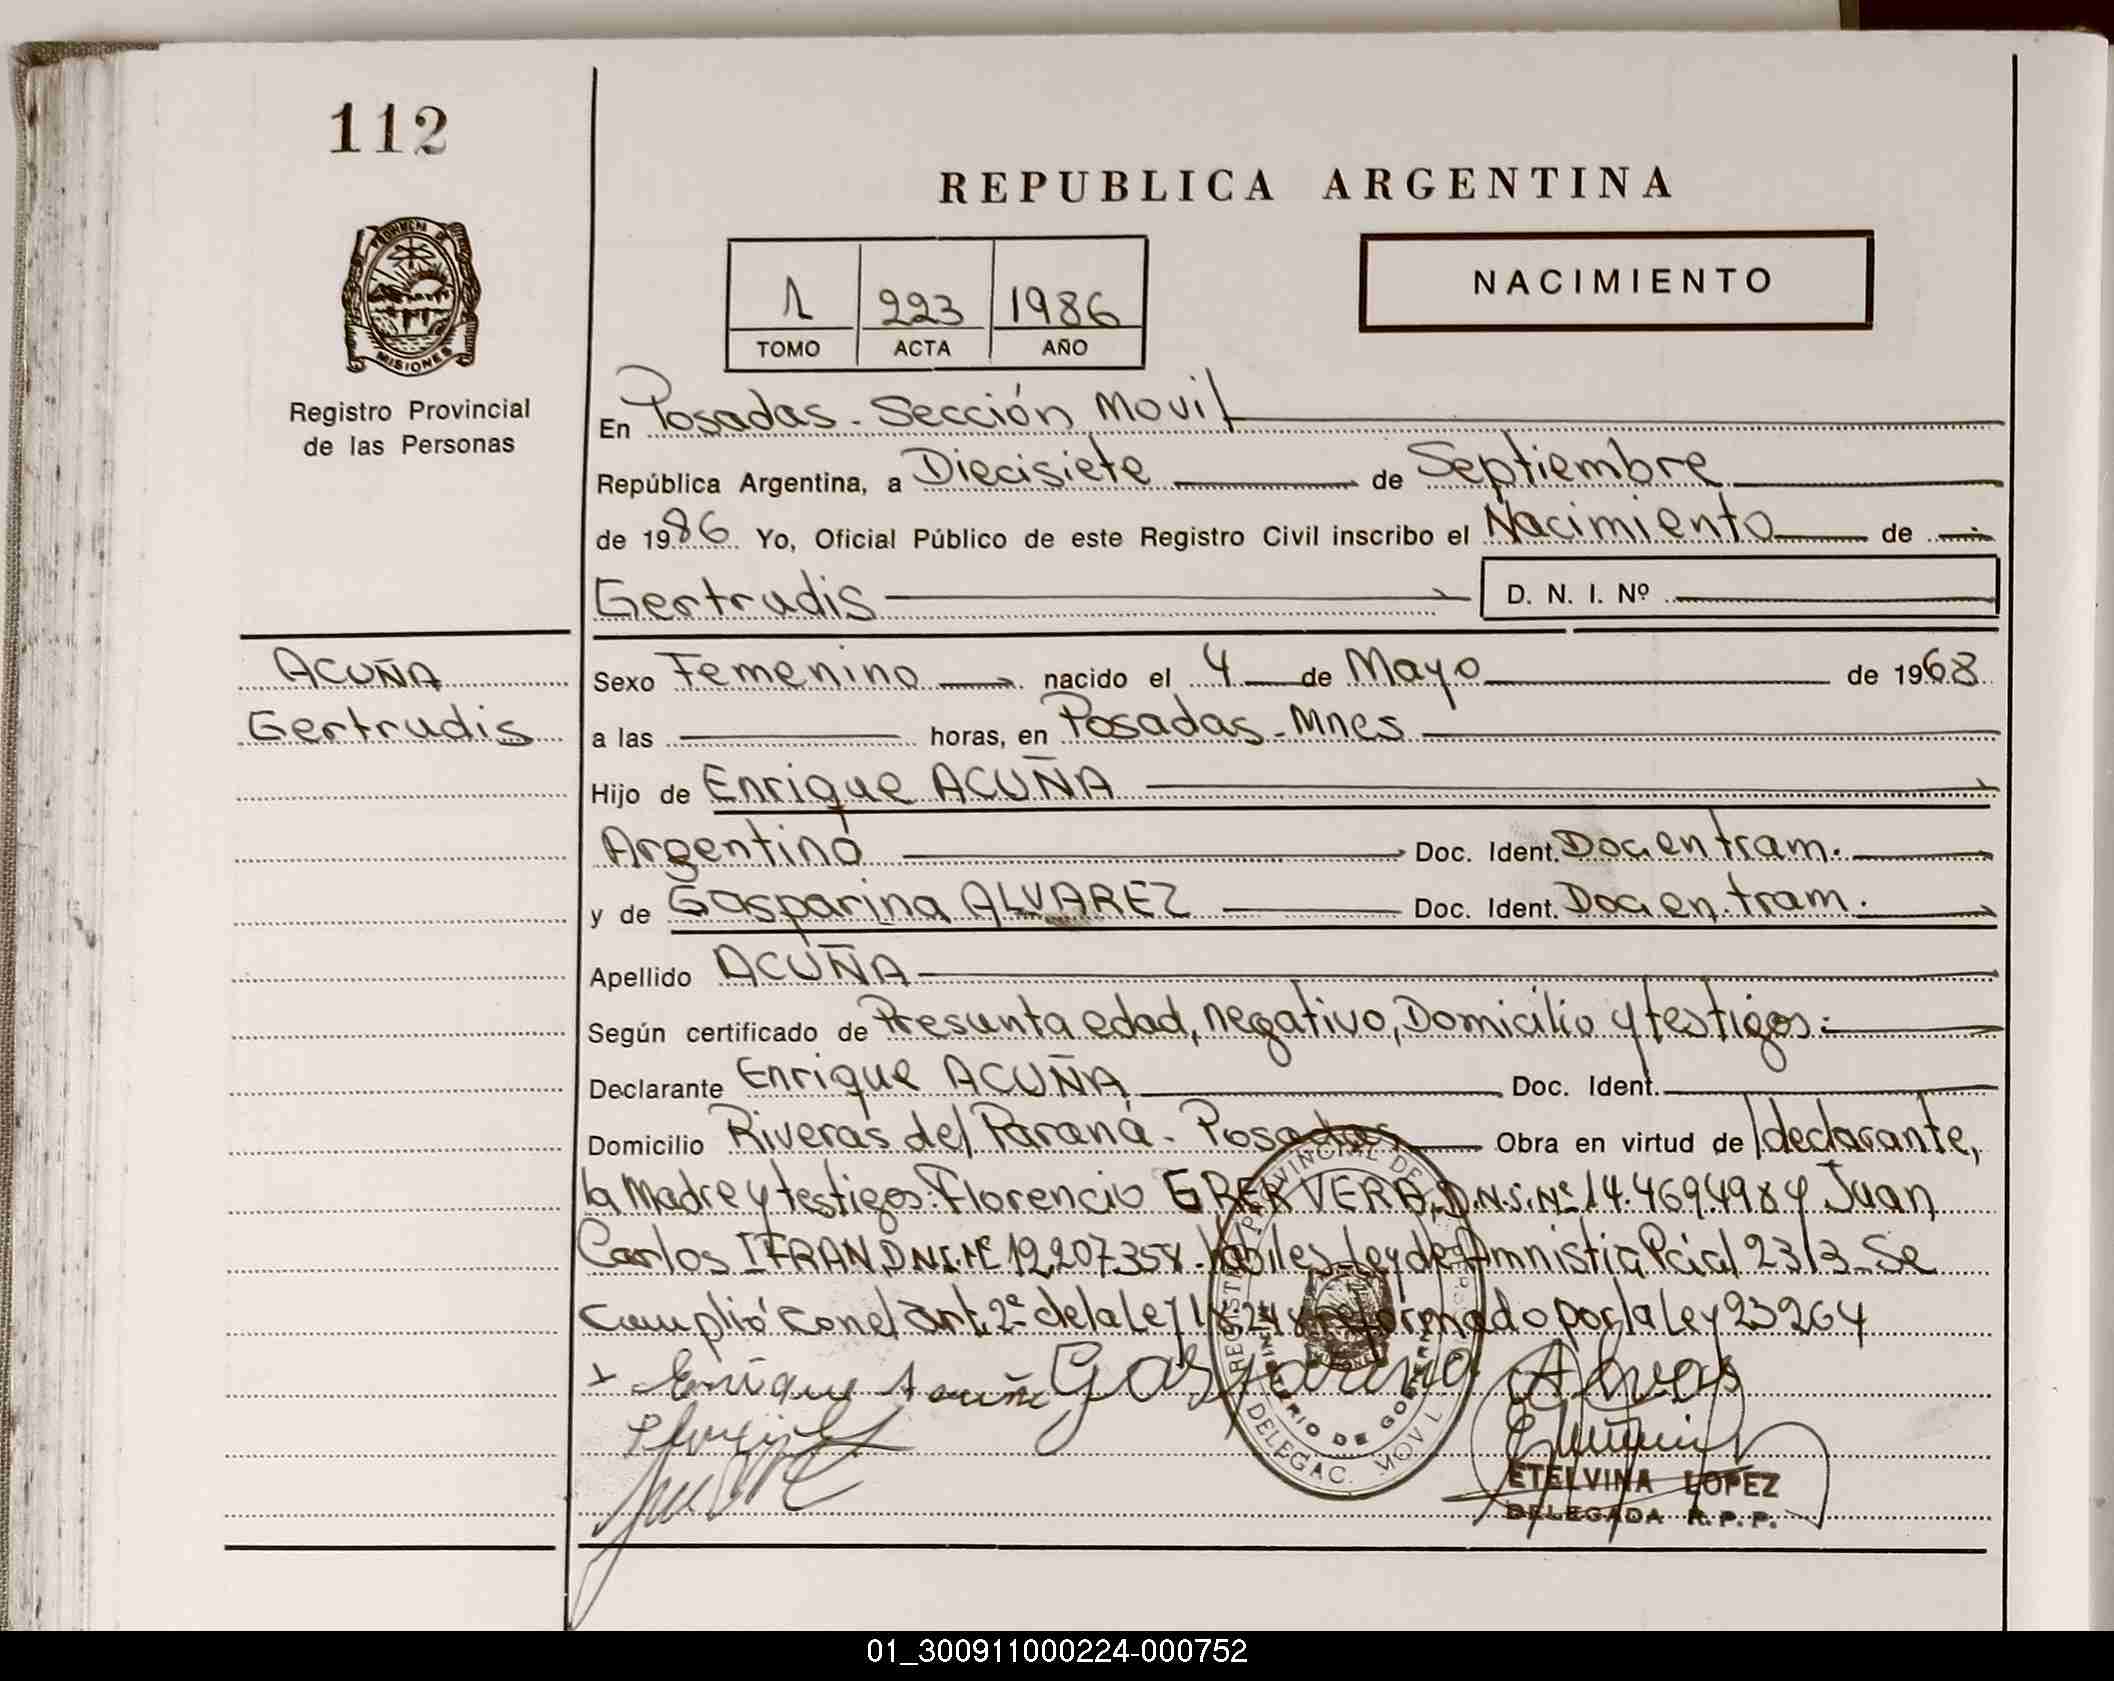 112
REPUBLICA ARGENTINA
NACIMIENTO
1 223 1986
TOMO ACTA AÑO
PROVINCIA DE
MISIONES
Registro Provincial
de las Personas
En Posadas - Sección Movil
República Argentina, a Diecisiete de Septiembre
de 1986 Yo, Oficial Público de este Registro Civil inscribo el Nacimiento de
Gertrudis D. N. I. Nº
ACUÑA
Gertrudis
Sexo Femenino nacido el 4 de Mayo de 1968
a las horas, en Posadas - Mnes
Hijo de Enrique ACUÑA
Argentino Doc. Ident. Doc. en tram.
y de Gasparina ALVAREZ Doc. Ident. Doc. en tram.
Apellido ACUÑA
Según certificado de Presunta edad, negativo, Domicilio y testigos:
Declarante Enrique ACUÑA Doc. Ident.
Domicilio Riveras del Paraná - Posadas Obra en virtud de declarante,
la Madre y testigos: Florencio VERA, D.N.I. Nº 14.469.498 y Juan
Carlos IFRAN, D.N.I. Nº 12.207.358 - hábiles - Ley de Amnistia Pcial 2313 - Se
cumplió con el art. 2º de la Ley 18.248 reformado por la Ley 23264
Enrique Acuña Gasparina Alvas
ETELVINA LOPEZ
DELEGADA R.P.P.
REGISTRO PROVINCIAL DE
MINISTERIO DE GOBIERNO
DELEGAC. MOVIL
01_300911000224-000752